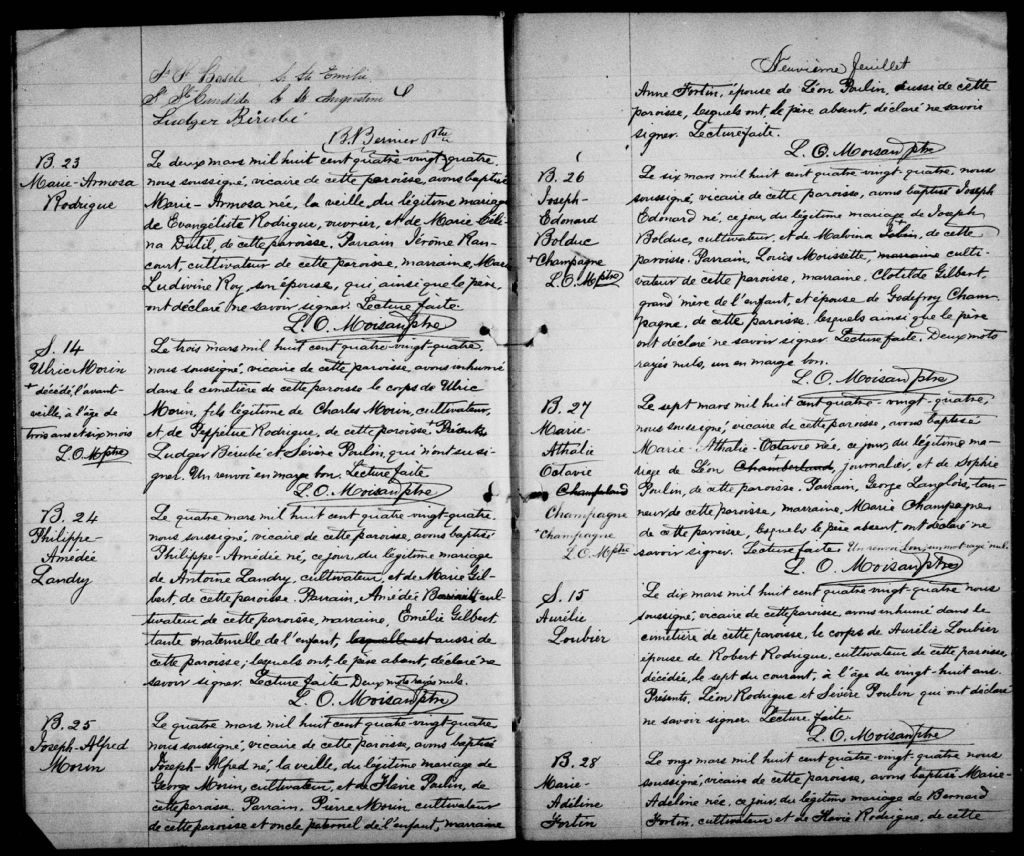 Ludger Bérubé
B. Bernier Ptre
B. 23
Marie-Armosa
Rodrigue
Le deux mars mil huit cent quatre-vingt-quatre,
nous soussigné, vicaire de cette paroisse, avons baptisé
Marie-Armosa née, la veille, du légitime mariage
de Evangéliste Rodrigue, ouvrier, et de Marie Céli-
na Dutil, de cette paroisse. Parrain Jérôme Ran-
court, cultivateur de cette paroisse, marraine, Marie
Ludivine Roy, son épouse, qui, ainsi que le père,
ont déclaré ne savoir signer. Lecture faite.
L. O. Moisan Ptre
S. 14
Ulric Morin
+ décédé, l'avant
veille, à l'âge de
trois ans et six mois
L. O. M ptre
Le trois mars mil huit cent quatre-vingt-quatre,
nous soussigné, vicaire de cette paroisse, avons inhumé
dans le cimetière de cette paroisse le corps de Ulric
Morin, fils légitime de Charles Morin, cultivateur,
et de Perpétue Rodrigue, de cette paroisse + Présents
Ludger Bérubé et Sévère Poulin, qui n'ont su si-
gner. Un renvoi en marge bon. Lecture faite
L. O. Moisan ptre
B. 24
Philippe-
Amédée
Landry
Le quatre mars mil huit cent quatre-vingt-quatre,
nous soussigné, vicaire de cette paroisse, avons baptisé
Philippe-Amédée né, ce jour, du légitime mariage
de Antoine Landry, cultivateur, et de Marie Gil-
bert, de cette paroisse. Parrain, Amédée cul-
tivateur de cette paroisse, marraine, Emélie Gilbert,
tante maternelle de l'enfant, lesquelle est aussi de
cette paroisse; lesquels ont, le père absent, déclaré ne
savoir signer. Lecture faite Deux mots rayés nuls.
L. O. Moisan ptre
B. 25
Joseph-Alfred
Morin
Le quatre mars mil huit cent quatre-vingt-quatre
nous soussigné, vicaire de cette paroisse, avons baptisé
Joseph-Alfred né, la veille, du légitime mariage de
George Morin, cultivateur, et de Flavie Poulin, de
cette paroisse. Parrain, Pierre Morin cultivateur
de cette paroisse et oncle paternel de l'enfant, marraine
Neuvième feuillet
Anne Fortin, épouse de Léon Poulin, aussi de cette
paroisse, lesquels ont, le père absent, déclaré ne savoir
signer. Lecture faite.
L. O. Moisan ptre
B. 26
Joseph-
Edouard
Bolduc
+ Champagne
L. O. M ptre
Le six mars mil huit cent quatre-vingt-quatre, nous
soussigné, vicaire de cette paroisse, avons baptisé Joseph
Edouard né, ce jour, du légitime mariage de Joseph
Bolduc, cultivateur, et de Malvina de cette
paroisse. Parrain, Louis Moussette, marraine culti-
vateur de cette paroisse, marraine, Clotilde Gilbert,
grand'mère de l'enfant, et épouse de Godefroy Cham-
pagne, de cette paroisse, lesquels ainsi que le père
ont déclaré ne savoir signer. Lecture faite. Deux mots
rayés nuls, un en marge bon.
L. O. Moisan ptre
B. 27
Marie-
Athalie
Octavie
Champagne
+ Champagne
L. O. M ptre
Le sept mars mil huit cent quatre-vingt-quatre,
nous soussigné, vicaire de cette paroisse, avons baptisé
Marie-Athalie-Octavie née, ce jour, du légitime ma-
riage de Léon Chamberland, journalier, et de Sophie
Poulin, de cette paroisse. Parrain, George Langlois, tan-
neur, de cette paroisse, marraine, Marie Champagne
de cette paroisse, lesquels le père absent, ont déclaré ne
savoir signer. Lecture faite. Un renvoi bon, un mot rayé nul.
L. O. Moisan ptre
S. 15
Aurélie
Loubier
Le dix mars mil huit cent quatre-vingt-quatre nous
soussigné, vicaire de cette paroisse, avons inhumé dans le
cimetière de cette paroisse, le corps de Aurélie Loubier
épouse de Robert Rodrigue, cultivateur de cette paroisse,
décédée, le sept du courant, à l'âge de vingt-huit ans.
Présents, Léon Rodrigue et Sévère Poulin qui ont déclaré
ne savoir signer. Lecture faite.
L. O. Moisan ptre
B. 28
Marie-
Adéline
Fortin
Le onze mars mil huit cent quatre-vingt-quatre nous
soussigné, vicaire de cette paroisse, avons baptisé Marie-
Adéline née, ce jour, du légitime mariage de Bernard
Fortin, cultivateur et de Flavie Rodrigue, de cette